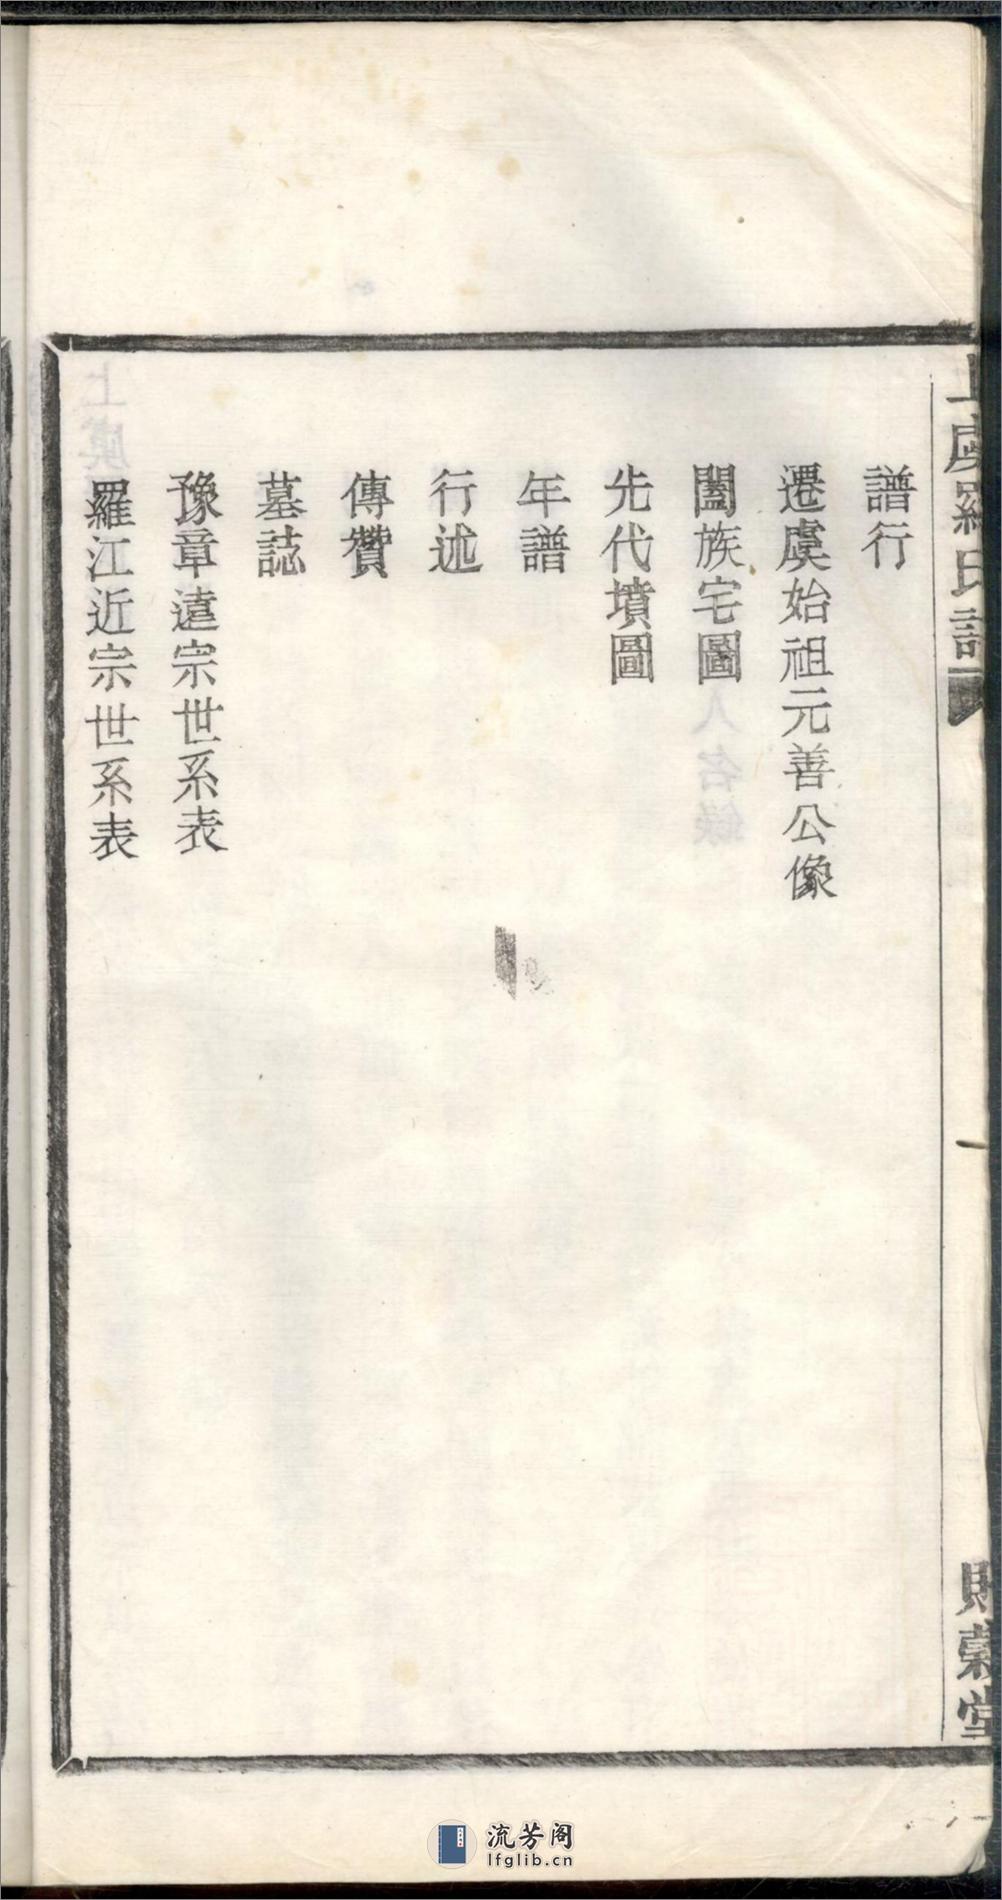 上虞羅氏譜
一
貽穀堂
譜行
遷虞始祖元善公像
闔族宅圖
先代墳圖
年譜
行述
傳贊
墓誌
豫章遠宗世系表
羅江近宗世系表
流芳阁
lfglib.cn